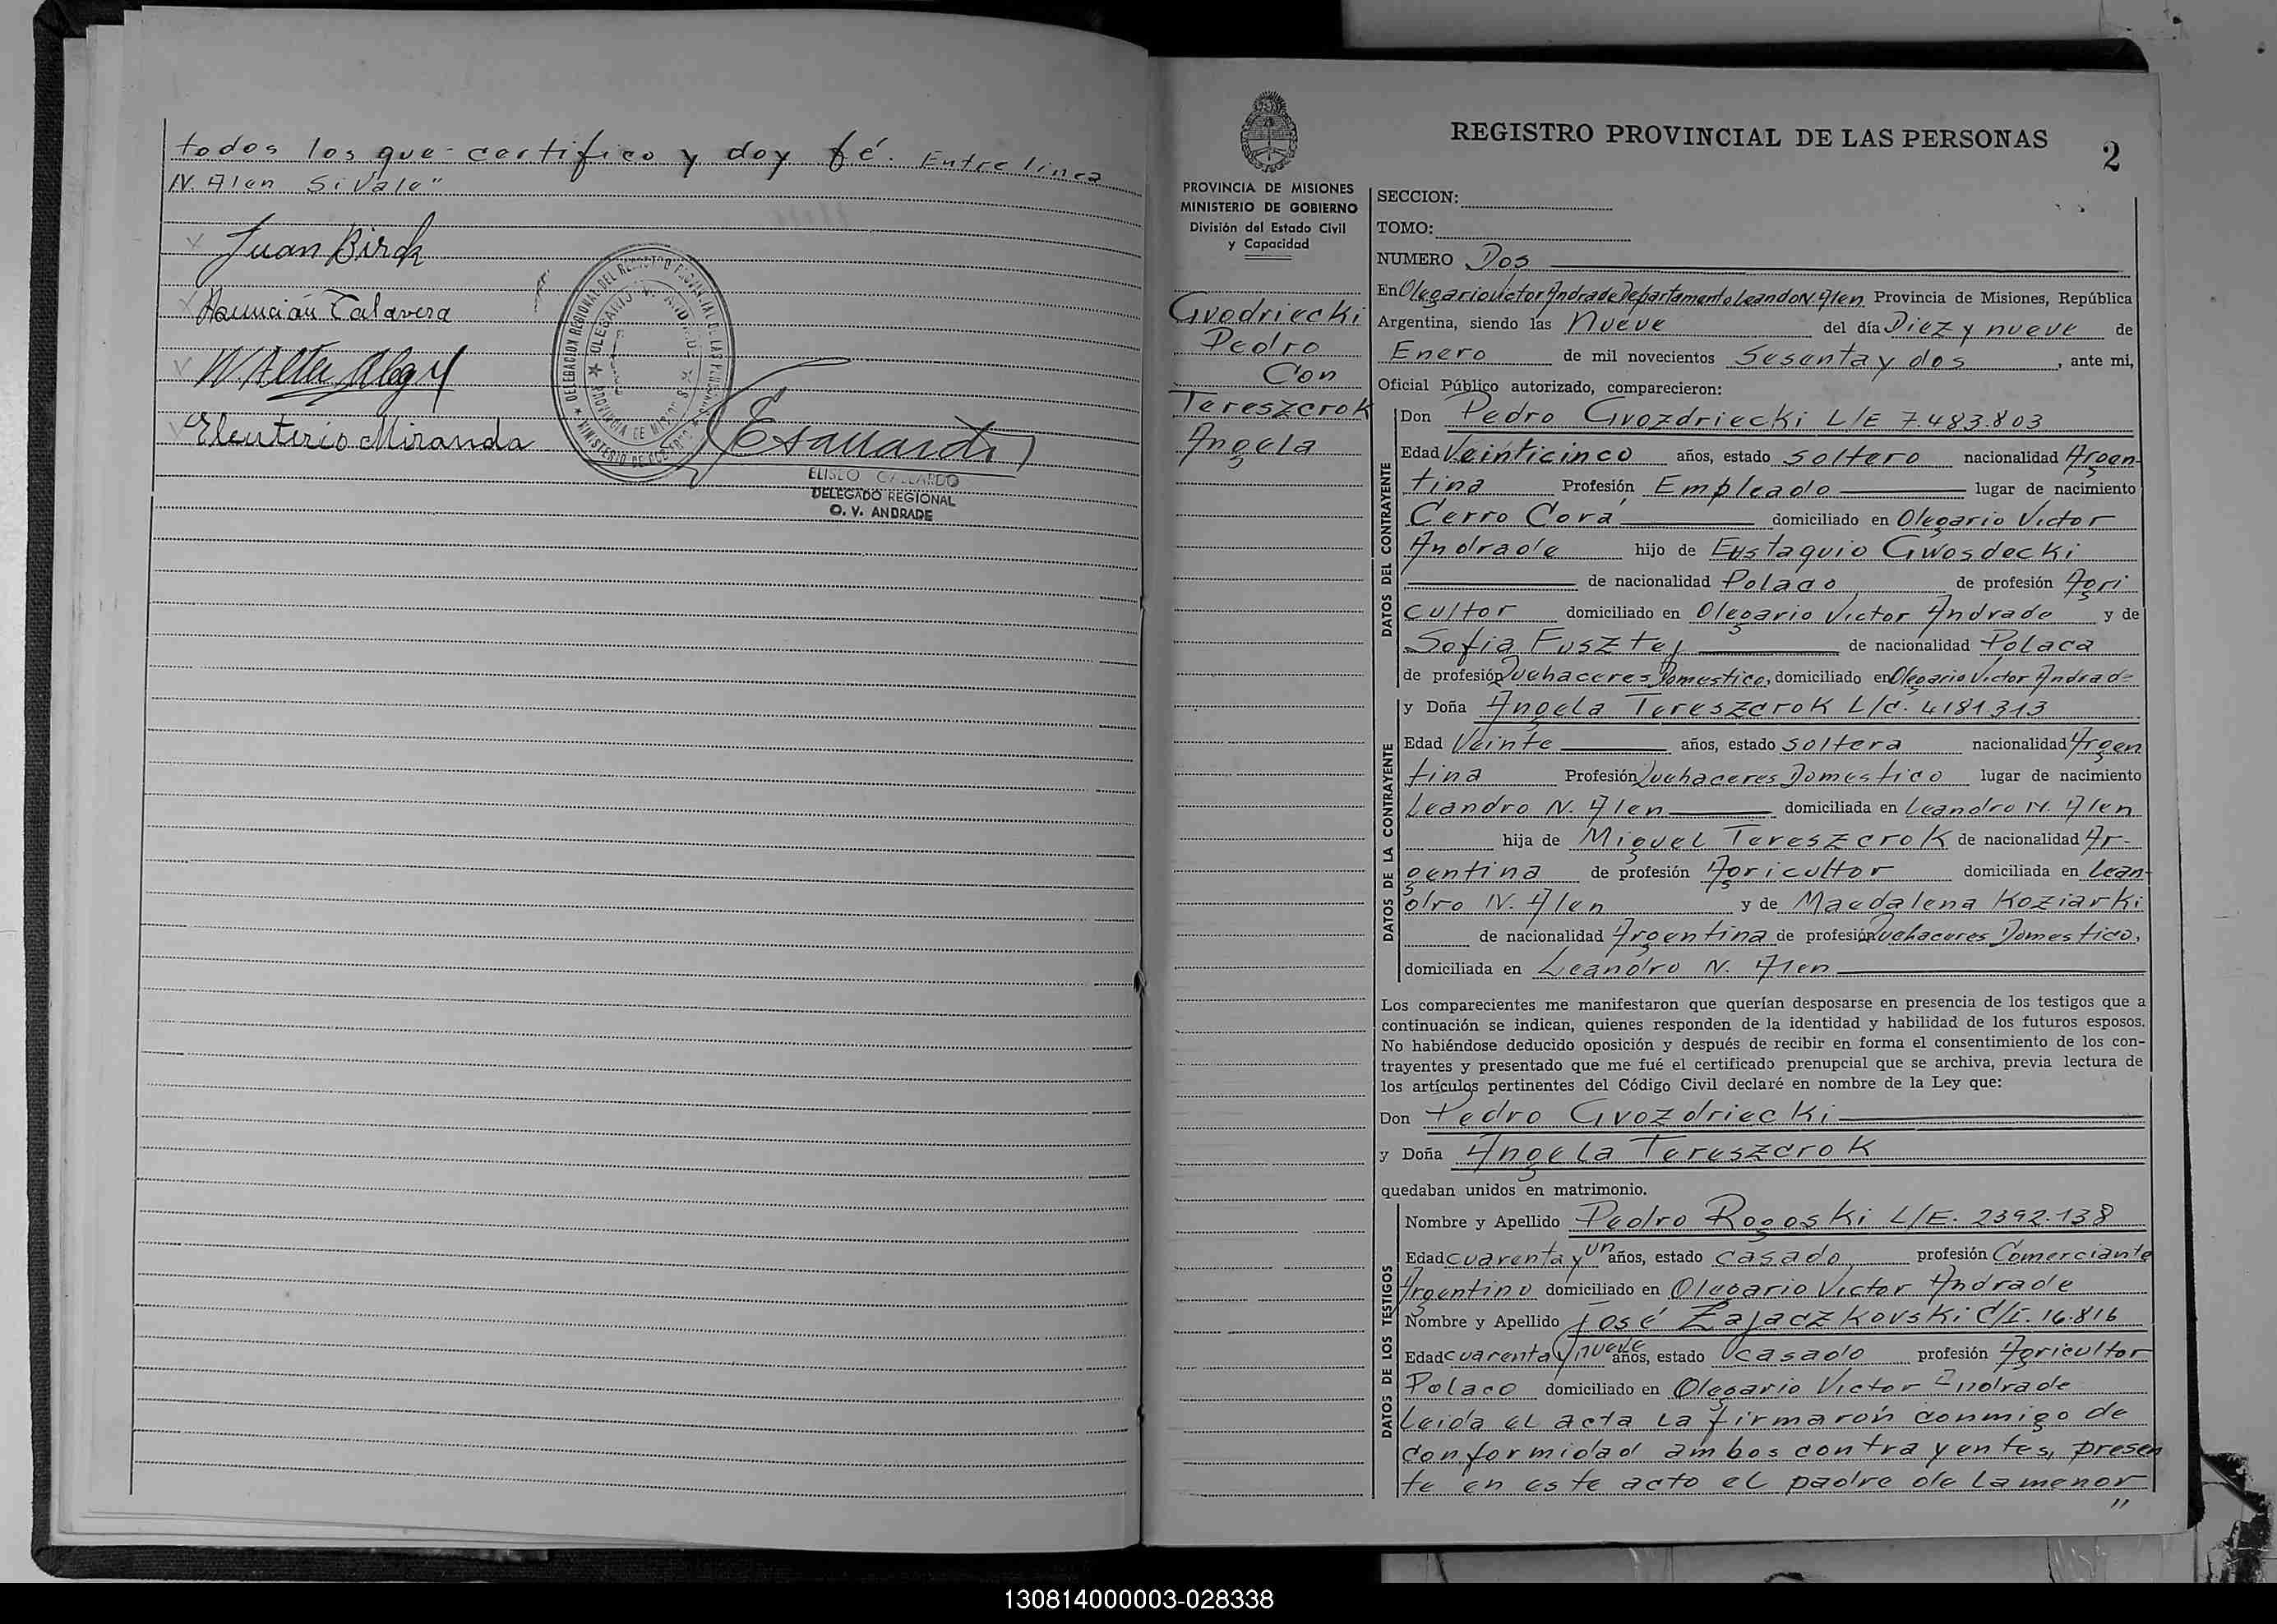 todos los que certifico y doy fé. Entre linea
N. Alen Si Vale"
Juan Birck
Asunción Talavera
Walter
Eleuterio Miranda
ELISEO GALLARDO
DELEGADO REGIONAL
O. V. ANDRADE
REGISTRO PROVINCIAL DE LAS PERSONAS
2
PROVINCIA DE MISIONES
MINISTERIO DE GOBIERNO
División del Estado Civil
y Capacidad
Gvodriecki
Pedro
Con
Tereszcrok
Angela
SECCION:
TOMO:
NUMERO Dos
En Olegario Victor Andrade Departamento Leando N. Alen Provincia de Misiones, República
Argentina, siendo las Nueve del día Diez y nueve de
Enero de mil novecientos Sesenta y dos, ante mi,
Oficial Público autorizado, comparecieron:
DATOS DEL CONTRAYENTE
Don Pedro Gvozdriecki L/E 7.483.803
Edad Veinticinco años, estado soltero nacionalidad Argen-
tina Profesión Empleado lugar de nacimiento
Cerro Corá domiciliado en Olegario Victor
Andrade hijo de Eustaquio Gwosdecki
de nacionalidad Polaco de profesión Agri
cultor domiciliado en Olegario Victor Andrade y de
Sofia Fusztej de nacionalidad Polaca
de profesión Quehaceres Domestico, domiciliado en Olegario Victor Andrade
DATOS DE LA CONTRAYENTE
y Doña Angela Tereszcrok L/c. 4181313
Edad Veinte años, estado soltera nacionalidad Argen
tina Profesión Quehaceres Domestico lugar de nacimiento
Leandro N. Alen domiciliada en Leandro N. Alen
hija de Miguel Tereszcrok de nacionalidad Ar-
gentina de profesión Agricultor domiciliada en Lean-
dro N. Alen y de Magdalena Koziarki
de nacionalidad Argentina de profesión Quehaceres Domestico,
domiciliada en Leandro N. Alen
Los comparecientes me manifestaron que querían desposarse en presencia de los testigos que a
continuación se indican, quienes responden de la identidad y habilidad de los futuros esposos.
No habiéndose deducido oposición y después de recibir en forma el consentimiento de los con-
trayentes y presentado que me fué el certificado prenupcial que se archiva, previa lectura de
los artículos pertinentes del Código Civil declaré en nombre de la Ley que:
Don Pedro Gvozdriecki
y Doña Angela Tereszcrok
quedaban unidos en matrimonio.
DATOS DE LOS TESTIGOS
Nombre y Apellido Pedro Rogoski L/E. 2392.138
Edad cuarenta y un años, estado casado profesión Comerciante
Argentino domiciliado en Olegario Victor Andrade
Nombre y Apellido José Zajaczkovski C/I. 16.816
Edad cuarenta y nueve años, estado casado profesión Agricultor
Polaco domiciliado en Olegario Victor Andrade
Leida el acta la firmarón conmigo de
conformidad ambos contrayentes, presen
te en este acto el padre de la menor
"
130814000003-028338